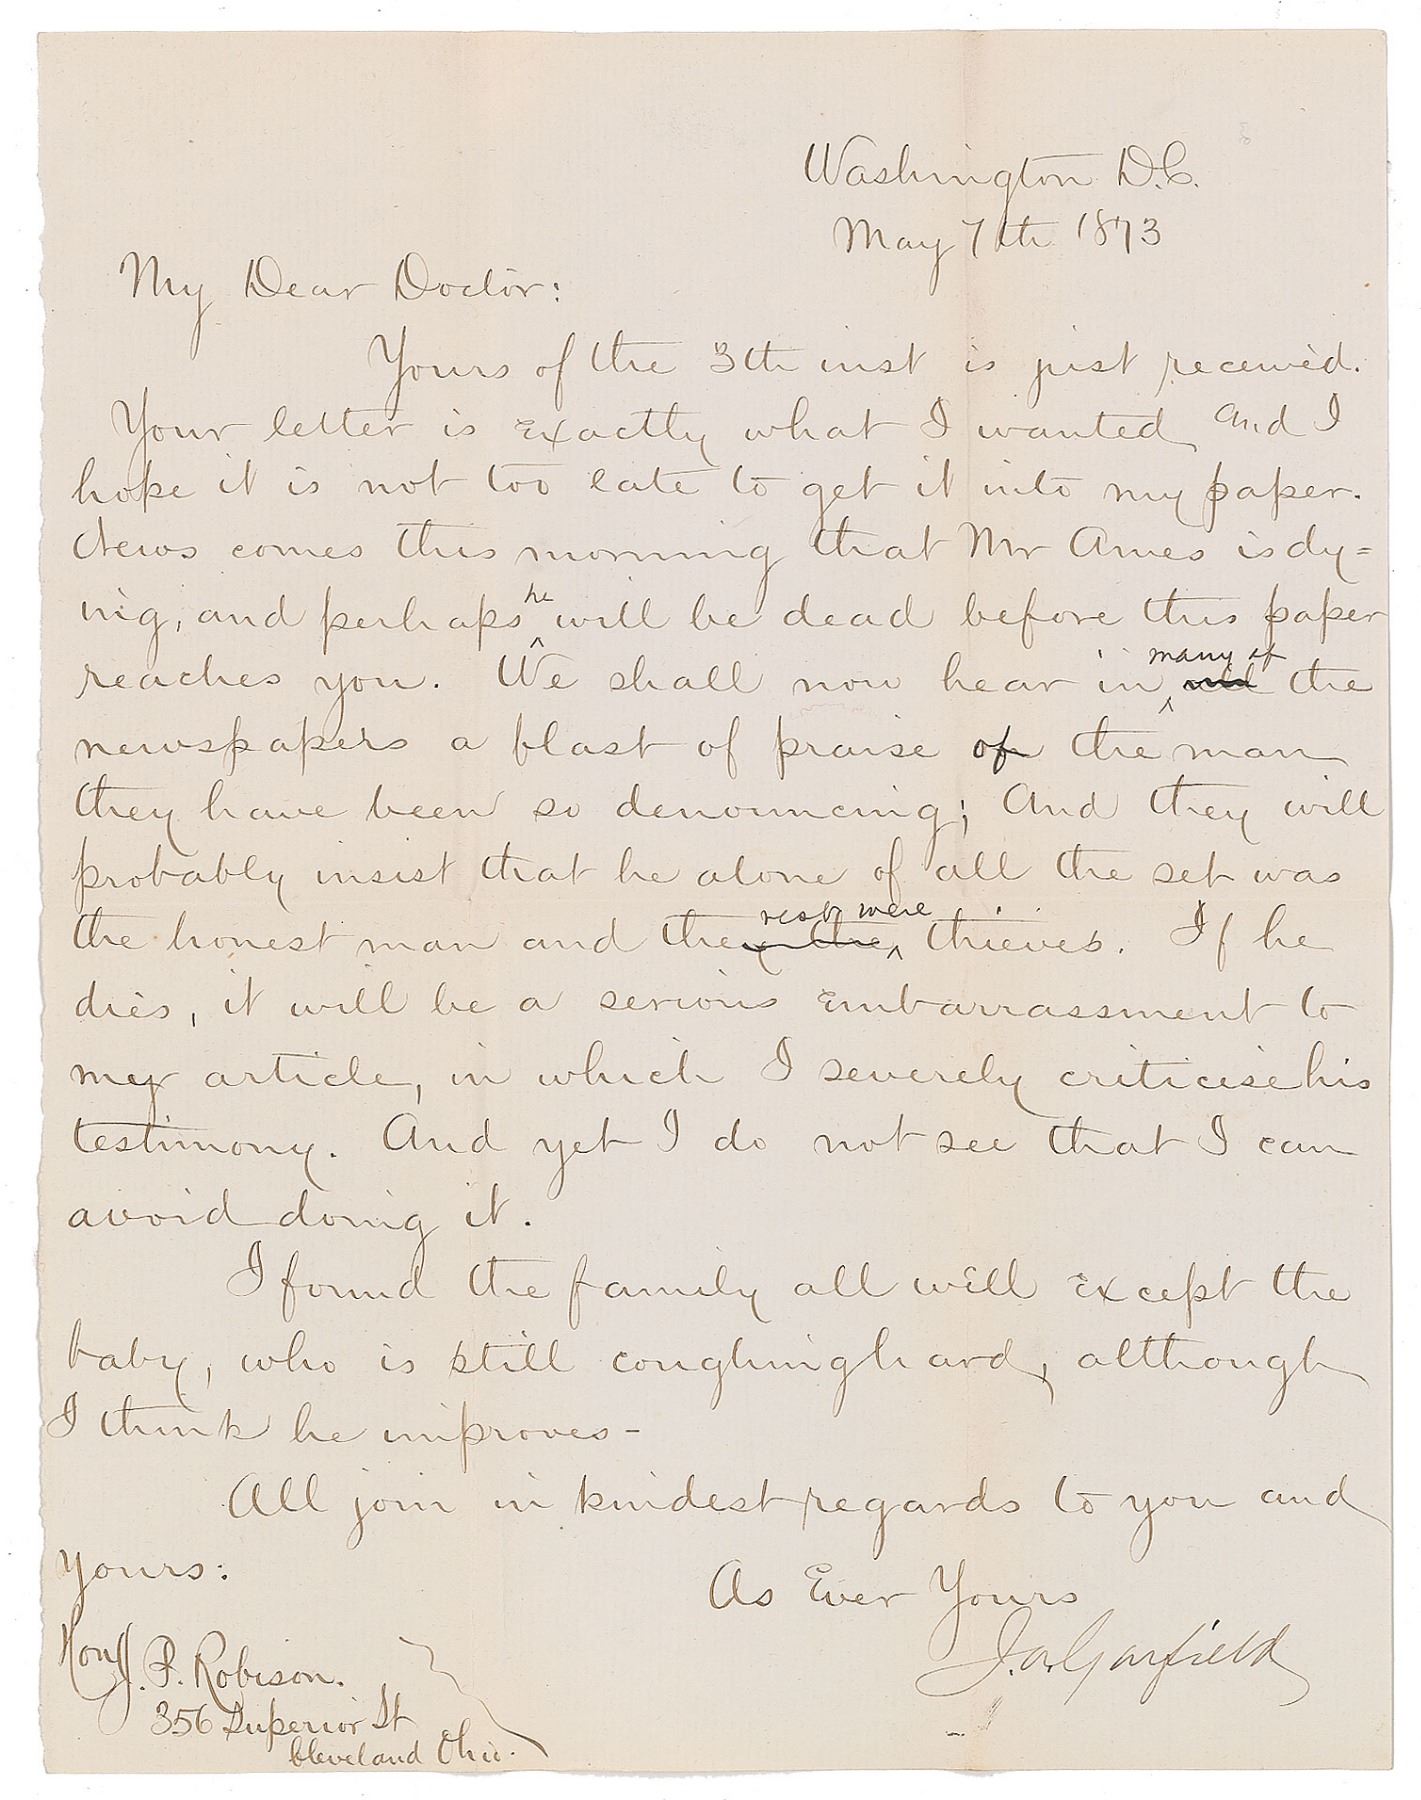 Washington D.C.
May 7th 1873
My Dear Doctor:
Yours of the 3th inst is just received.
Your letter is exactly what I wanted and I
hope it is not too late to get it into my paper.
News comes this morning that Mr Ames is dy=
ing, and perhaps he will be dead before this paper
reaches you. We shall now hear in many of all the
newspapers a blast of praise of the man
they have been so denouncing; And they will
probably insist that he alone of all the set was
the honest man and they the rest were thieves. If he
dies, it will be a serious embarrassment to
my article, in which I severely criticise his
testimony. And yet I do not see that I can
avoid doing it.
I found the family all well except the
baby, who is still coughing hard, although
I think he improves -
All join in kindest regards to you and
yours:
As Ever Yours
J. A. Garfield
Hon J. P. Robison.
356 Superior St
Cleveland Ohio.